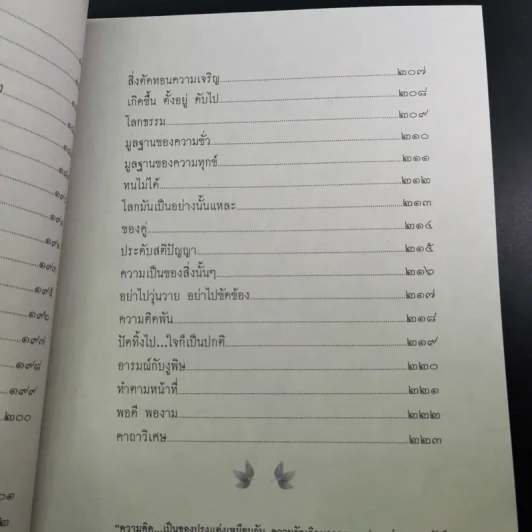 สิ่งตัดทอนความเจริญ ๒๐๗
เกิดขึ้น ตั้งอยู่ ดับไป ๒๐๘
โลกธรรม ๒๐๙
มูลฐานของความชั่ว ๒๑๐
มูลฐานของความทุกข์ ๒๑๑
ทนไม่ได้ ๒๑๒
โลกมันเป็นอย่างนั้นแหละ ๒๑๓
ของคู่ ๒๑๔
ประดับสติปัญญา ๒๑๕
ความเป็นของสิ่งนั้นๆ ๒๑๖
อย่าไปวุ่นวาย อย่าไปขัดข้อง ๒๑๗
ความคิดพัน ๒๑๘
ปัดทิ้งไป...ใจก็เป็นปกติ ๒๑๙
อารมณ์กับงูพิษ ๒๒๐
ทำตามหน้าที่ ๒๒๑
พอดี พองาม ๒๒๒
คาถาวิเศษ ๒๒๓
๑๙๖
๑๙๗
๑๙๘
๑๙๙
๒๐๐
"ความคิด...เป็นของปรุงแต่งเหมือนกัน